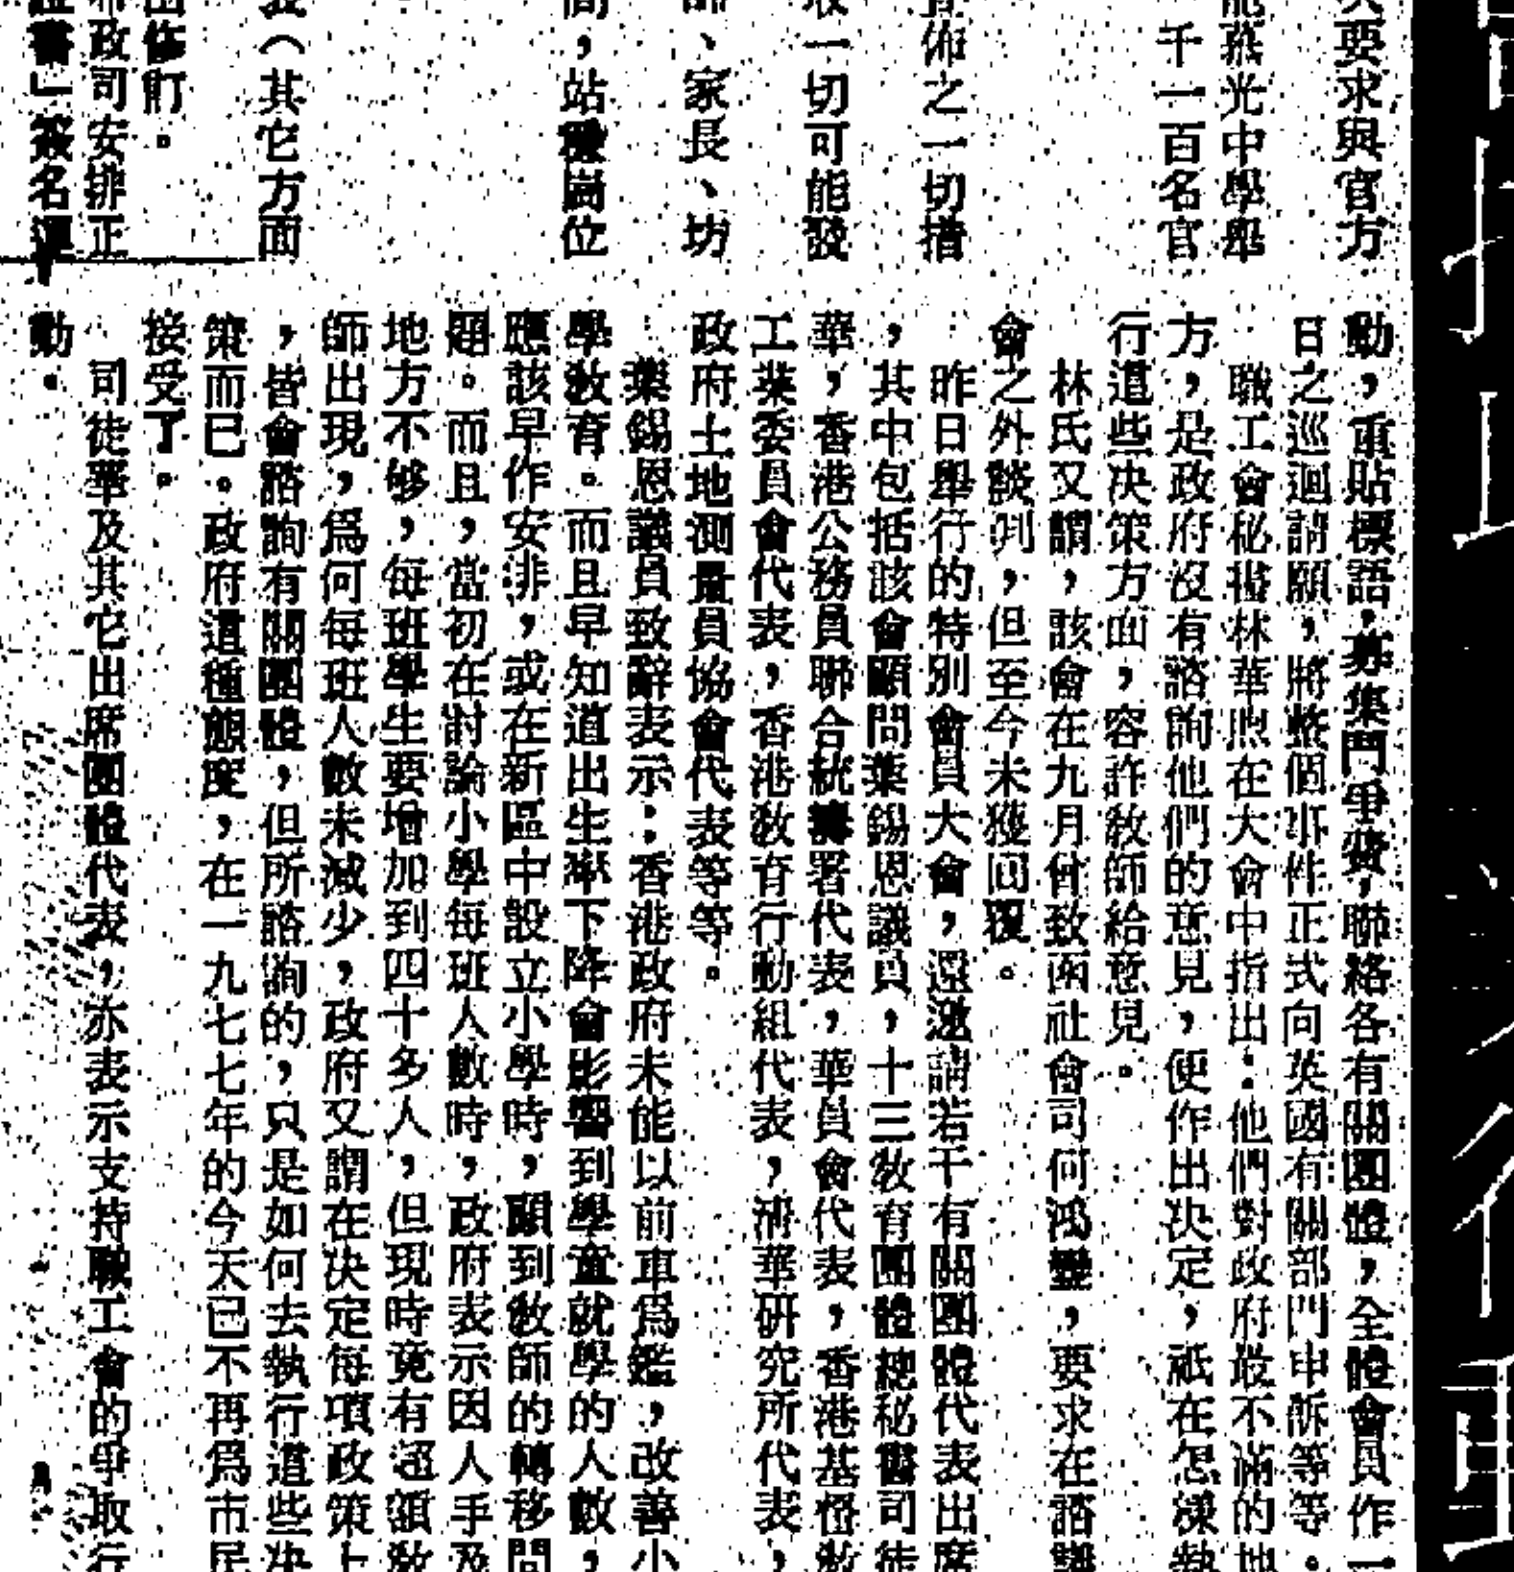 大要求與官方
能慕光中學舉
千一百名官
佈之一切措
一切可能設
、家長、坊
,站穩崗位
義(其它方面
出修訂。
布政司安排正
證書」簽名運
動,重貼標語,募集鬥爭費,聯絡各有關團體,全體會員作一
日之巡迴請願,將整個事件正式向英國有關部門申訴等等。
職工會秘書林華煦在大會中指出:他們對政府最不滿的地
方,是政府沒有諮詢他們的意見,便作出决定,祇在怎樣執
行這些决策方面,容許敎師給意見。
林氏又謂,該會在九月曾致函社會司何鴻鑾,要求在諮議
會之外談判,但至今未獲回覆。
昨日舉行的特別會員大會,還邀請若干有關團體代表出席
,其中包括該會顧問葉錫恩議員,十三敎育團體總秘書司徒
華,香港公務員聯合統籌署代表,華員會代表,香港基督敎
工業委員會代表,香港敎育行動組代表,清華研究所代表,
政府土地測量員協會代表等等。
葉錫恩議員致辭表示:香港政府未能以前車爲鑑,改善小
學敎育。而且早知道出生率下降會影響到學童就學的人數,
應該早作安排,或在新區中設立小學時,顧到敎師的轉移問
題。而且,當初在討論小學每班人數時,政府表示因人手及
地方不够,每班學生要增加到四十多人,但現時竟有超額敎
師出現,爲何每班人數未減少,政府又謂在决定每項政策上
,皆會諮詢有關團體,但所諮詢的,只是如何去執行這些决
策而已。政府這種態度,在一九七七年的今天已不再爲市民
接受了。
司徒華及其它出席團體代表,亦表示支持職工會的爭取行
動。